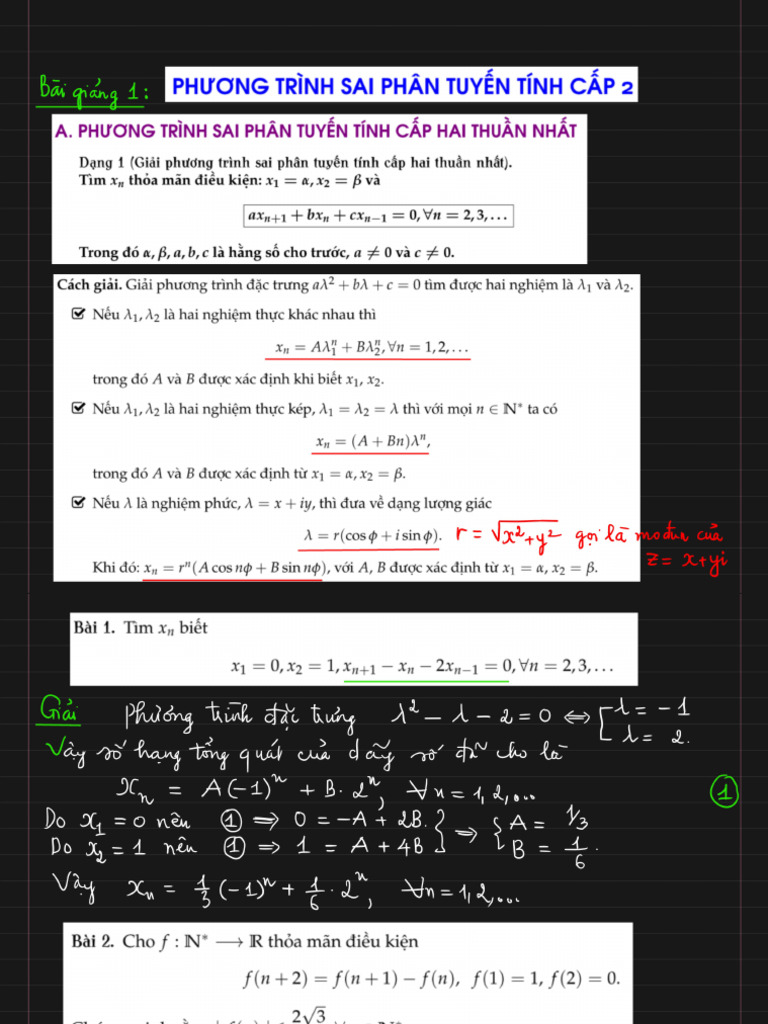 Bài giảng 1: PHƯƠNG TRÌNH SAI PHÂN TUYẾN TÍNH CẤP 2
A. PHƯƠNG TRÌNH SAI PHÂN TUYẾN TÍNH CẤP HAI THUẦN NHẤT
Dạng 1 (Giải phương trình sai phân tuyến tính cấp hai thuần nhất).
Tìm xₙ thỏa mãn điều kiện: x₁ = α, x₂ = β và
axₙ₊₁ + bxₙ + cxₙ₋₁ = 0, ∀n = 2, 3, . . .
Trong đó α, β, a, b, c là hằng số cho trước, a ≠ 0 và c ≠ 0.
Cách giải. Giải phương trình đặc trưng aλ² + bλ + c = 0 tìm được hai nghiệm là λ₁ và λ₂.
☑ Nếu λ₁, λ₂ là hai nghiệm thực khác nhau thì
xₙ = Aλ₁ⁿ + Bλ₂ⁿ, ∀n = 1, 2, . . .
trong đó A và B được xác định khi biết x₁, x₂.
☑ Nếu λ₁, λ₂ là hai nghiệm thực kép, λ₁ = λ₂ = λ thì với mọi n ∈ ℕ* ta có
xₙ = (A + Bn)λⁿ,
trong đó A và B được xác định từ x₁ = α, x₂ = β.
☑ Nếu λ là nghiệm phức, λ = x + iy, thì đưa về dạng lượng giác
λ = r(cos ϕ + i sin ϕ). r = √(x² + y²) gọi là mođun của
z = x + yi
Khi đó: xₙ = rⁿ(A cos nϕ + B sin nϕ), với A, B được xác định từ x₁ = α, x₂ = β.
Bài 1. Tìm xₙ biết
x₁ = 0, x₂ = 1, xₙ₊₁ − xₙ − 2xₙ₋₁ = 0, ∀n = 2, 3, . . .
Giải Phương trình đặc trưng λ² − λ − 2 = 0 ⇔ [ λ = −1
λ = 2.
Vậy số hạng tổng quát của dãy số đã cho là
xₙ = A(−1)ⁿ + B. 2ⁿ, ∀n = 1, 2, ... ①
Do x₁ = 0 nên ① ⇒ 0 = −A + 2B. } ⇒ { A = 1/3
Do x₂ = 1 nên ① ⇒ 1 = A + 4B } B = 1/6.
Vậy xₙ = 1/3 (−1)ⁿ + 1/6 . 2ⁿ, ∀n = 1, 2, ...
Bài 2. Cho f : ℕ* ⟶ ℝ thỏa mãn điều kiện
f(n + 2) = f(n + 1) − f(n), f(1) = 1, f(2) = 0.
2√3